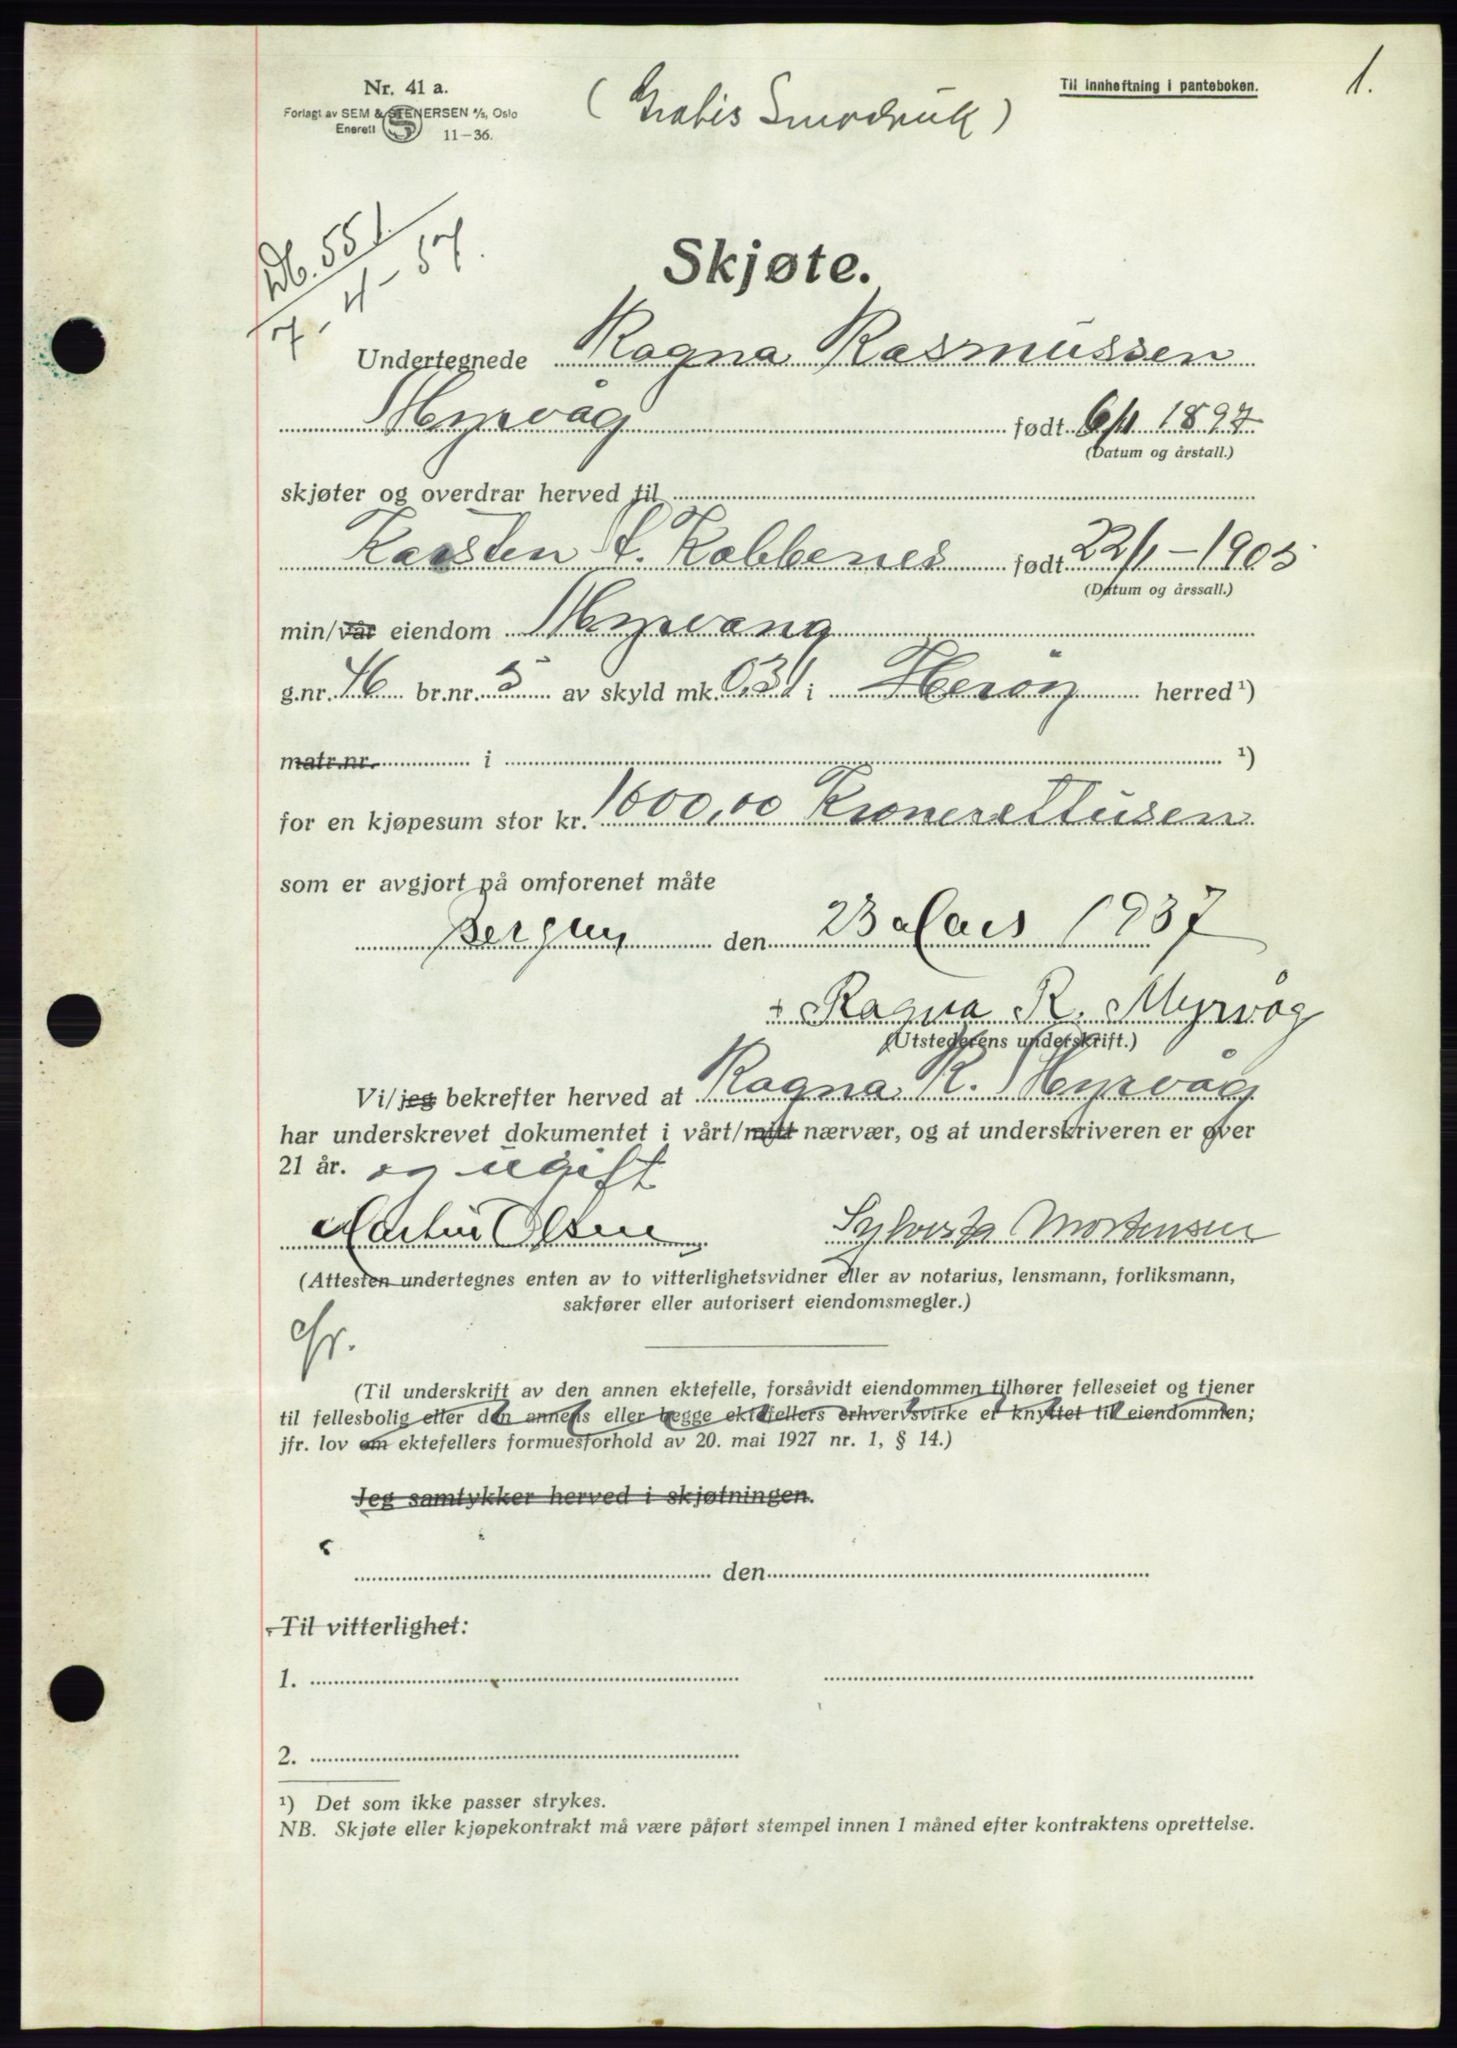 Nr. 41 a.
Forlagt av SEM & STENERSEN A/S, Oslo
Enerett
11-36.
Til innheftning i panteboken.
1.
Db. 551
7-4-37.
Skjøte.
Undertegnede Ragna Rasmussen
Myrvåg født 6/11 1897
(Datum og årstall.)
skjøter og overdrar herved til
Karsten S. Kobbenes født 22/1-1905
(Datum og årssall.)
min/vår eiendom Myrvang
g.nr. 46 br.nr. 5 av skyld mk. 0,31 i Herøy herred ¹)
matr.nr. i ¹)
for en kjøpesum stor kr. 1000,00 Kroner ettusen
som er avgjort på omforenet måte
Bergen den 23 Mars 1937
Ragna R. Myrvåg
(Utstederens underskrift.)
Vi/jeg bekrefter herved at Ragna R. Myrvåg
har underskrevet dokumentet i vårt/mitt nærvær, og at underskriveren er over
21 år. og ugift
Martin Olsen Sylvester Mortensen
(Attesten undertegnes enten av to vitterlighetsvidner eller av notarius, lensmann, forliksmann,
sakfører eller autorisert eiendomsmegler.)
(Til underskrift av den annen ektefelle, forsåvidt eiendommen tilhører felleseiet og tjener
til fellesbolig eller den annens eller begge ektefellers erhvervsvirke er knyttet til eiendommen;
jfr. lov om ektefellers formuesforhold av 20. mai 1927 nr. 1, § 14.)
Jeg samtykker herved i skjøtningen.
den
Til vitterlighet:
1.
2.
¹) Det som ikke passer strykes.
NB. Skjøte eller kjøpekontrakt må være påført stempel innen 1 måned efter kontraktens oprettelse.